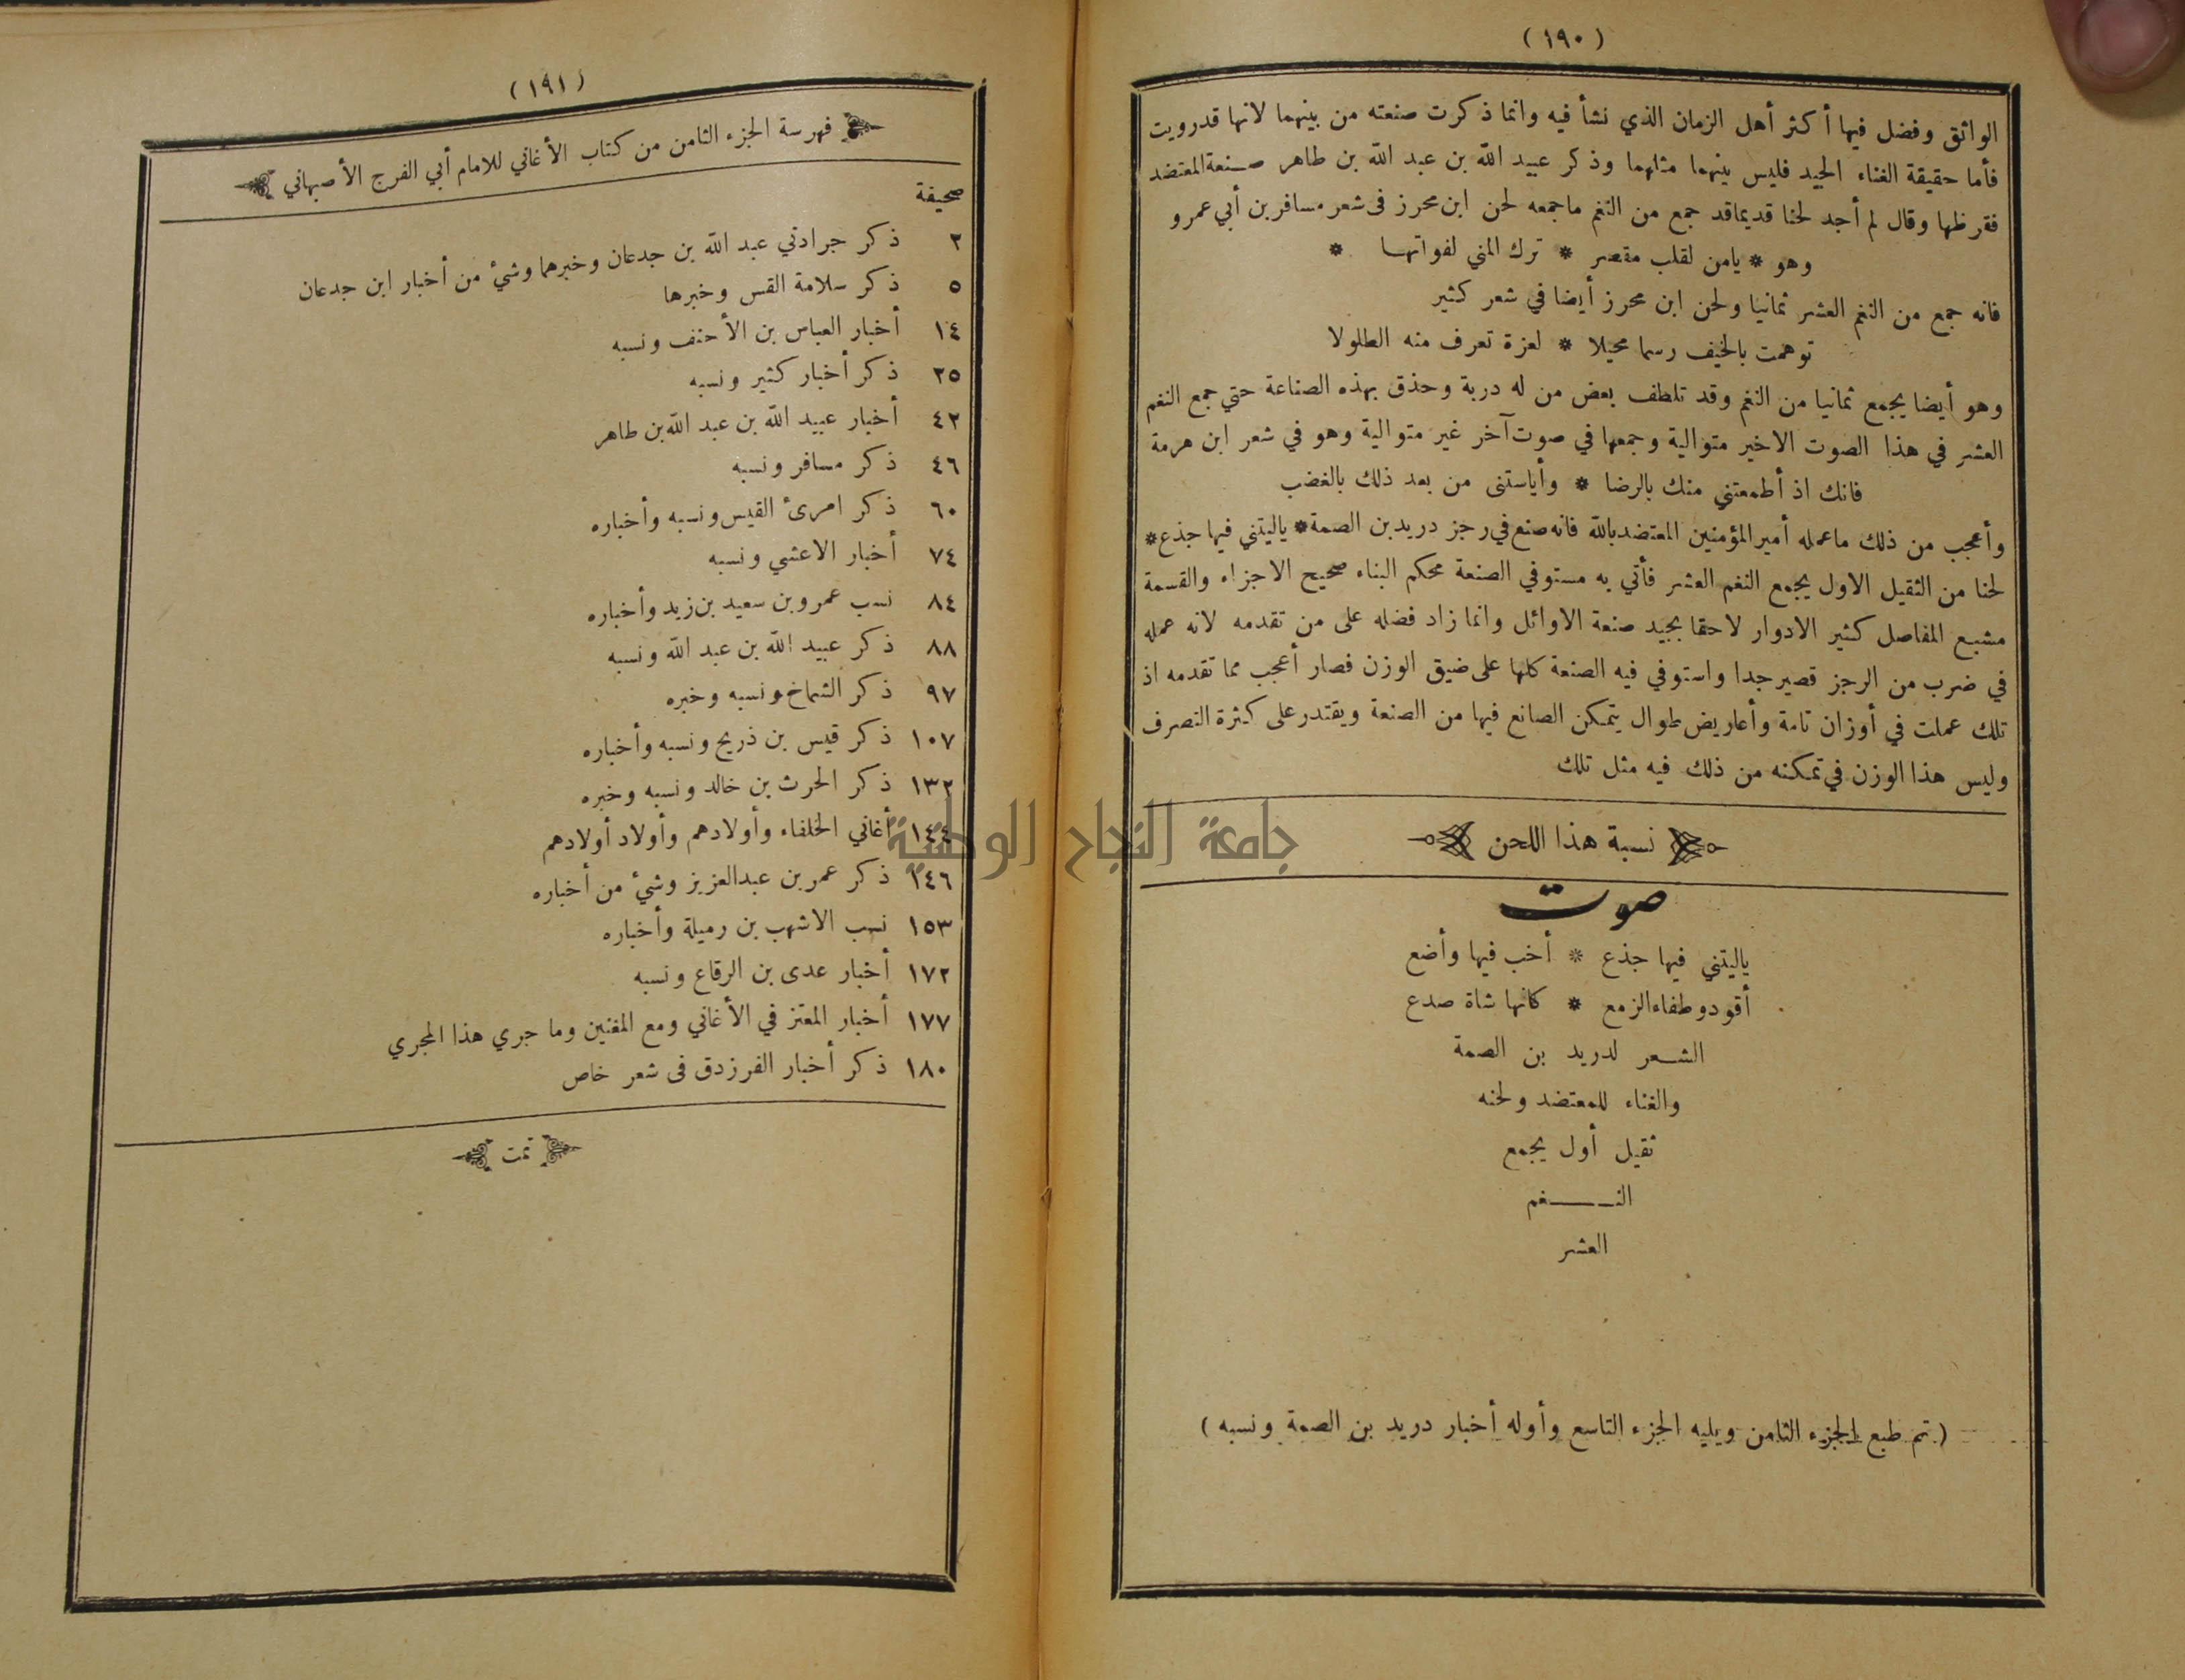 (١٩٠)
الواثق وفضل فيها أكثر أهل الزمان الذي نشأ فيه وانما ذكرت صنعته من بينهما لانها قدرويت
فأما حقيقة الغناء الجيد فليس بينهما مثلهما وذكر عبيد الله بن عبد الله بن طاهر صنعةالمعتضد
فقرظها وقال لم أجد لحنا قديماقد جمع من النغم ماجمعه لحن ابن محرز فى شعر مسافربن أبي عمرو
وهو * يامن لقلب مقصر * ترك المني لفواتها *
فانه جمع من النغم العشر ثمانيا ولحن ابن محرز أيضا في شعر كثير
توهمت بالخيف رسما محيلا * لعزة تعرف منه الطلولا
وهو أيضا يجمع ثمانيا من النغم وقد تلطف بعض من له دربة وحذق بهذه الصناعة حتي جمع النغم
العشر في هذا الصوت الاخير متوالية وجمعها في صوت آخر غير متوالية وهو في شعر ابن هرمة
فانك اذ أطمعتني منك بالرضا * وأياستنى من بعد ذلك بالغضب
وأعجب من ذلك ماعمله أميرالمؤمنين المعتضدبالله فانه صنع في رجز دريدبن الصمة* ياليتني فيها جذع*
لحنا من الثقيل الاول يجمع النغم العشر فأتي به مستوفي الصنعة محكم البناء صحيح الاجزاء والقسمة
مشبع المفاصل كثير الادوار لاحقا بجيد صنعة الاوائل وانما زاد فضله على من تقدمه لانه عمله
في ضرب من الرجز قصيرجدا واستوفي فيه الصنعة كلها على ضيق الوزن فصار أعجب مما تقدمه اذ
تلك عملت في أوزان تامة وأعاريض طوال يتمكن الصانع فيها من الصنعة ويقتدرعلى كثرة التصرف
وليس هذا الوزن في تمكنه من ذلك فيه مثل تلك
نسبة هذا اللحن
صوت
ياليتني فيها جذع * أخب فيها وأضع
أقودوطفاءالزمع * كانها شاة صدع
الشعر لدريد بن الصمة
والغناء للمعتضد ولحنه
ثقيل أول يجمع
النغم
العشر
(تم طبع الجزء الثامن ويليه الجزء التاسع وأوله أخبار دريد بن الصمة ونسبه)
(١٩١)
فهرسة الجزء الثامن من كتاب الأغاني للامام أبي الفرج الأصبهاني
صحيفة
٢ ذكر جرادتي عبد الله بن جدعان وخبرهما وشئ من أخبار ابن جدعان
٥ ذكر سلامة القس وخبرها
١٤ أخبار العباس بن الأحنف ونسبه
٢٥ ذكر أخبار كثير ونسبه
٤٢ أخبار عبيد الله بن عبد الله بن طاهر
٤٦ ذكر مسافر ونسبه
٦٠ ذكر امرئ القيس ونسبه وأخباره
٧٤ أخبار الاعشي ونسبه
٨٤ نسب عمروبن سعيد بن زيد وأخباره
٨٨ ذكر عبيد الله بن عبد الله ونسبه
٩٧ ذكر الشماخ ونسبه وخبره
١٠٧ ذكر قيس بن ذريح ونسبه وأخباره
١٣٢ ذكر الحرث بن خالد ونسبه وخبره
١٤٤ أغاني الخلفاء وأولادهم وأولاد أولادهم
١٤٦ ذكر عمربن عبدالعزيز وشئ من أخباره
١٥٣ نسب الاشهب بن رميلة وأخباره
١٧٢ أخبار عدى بن الرقاع ونسبه
١٧٧ أخبار المعتز في الأغاني ومع المغنين وما جري هذا المجري
١٨٠ ذكر أخبار الفرزدق فى شعر خاص
تمت
جامعة النجاح الوطنية